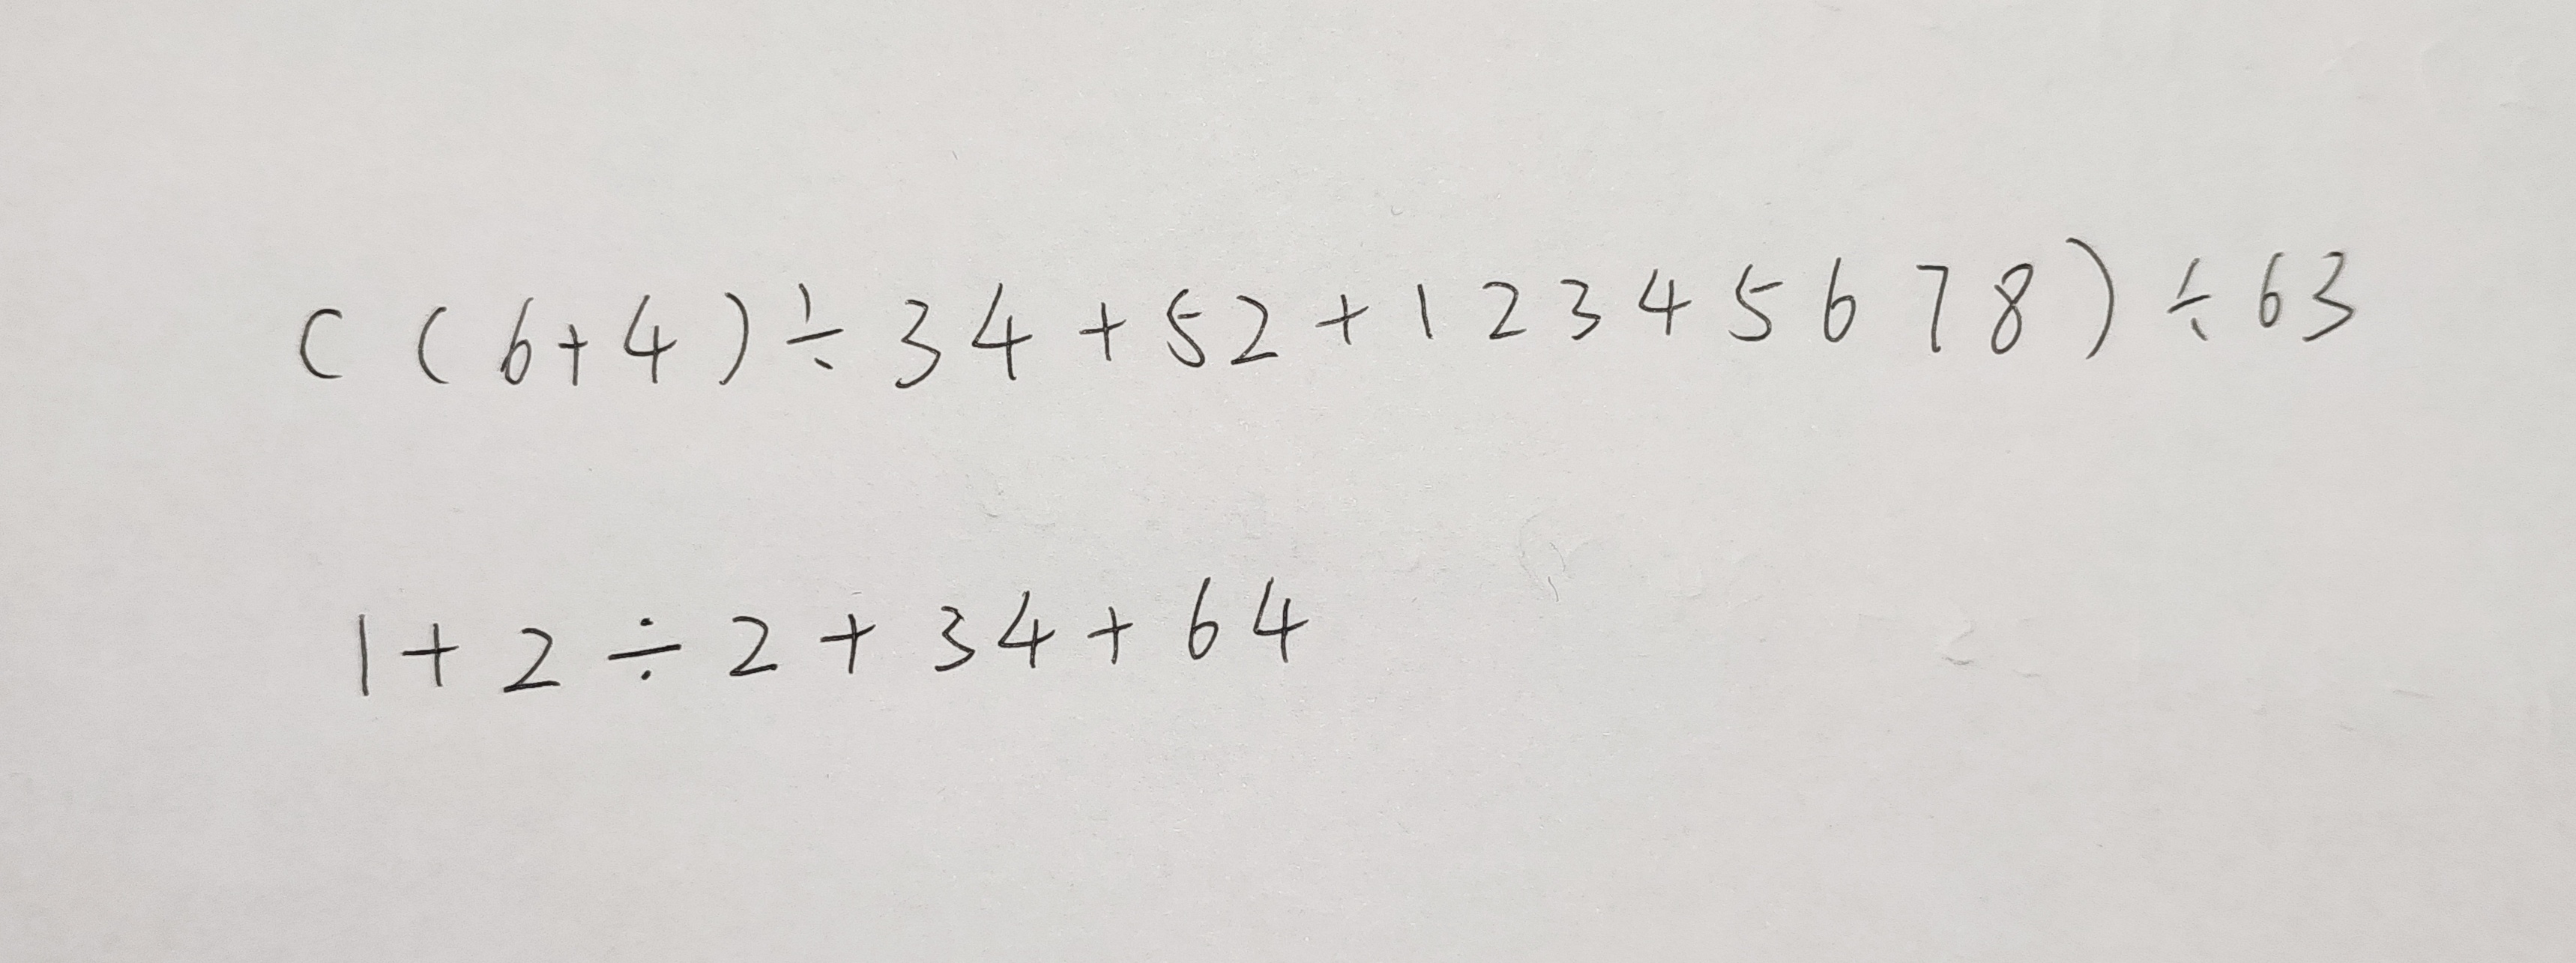 ((6+4)÷34+52+12345678)÷63
1+2÷2+34+64